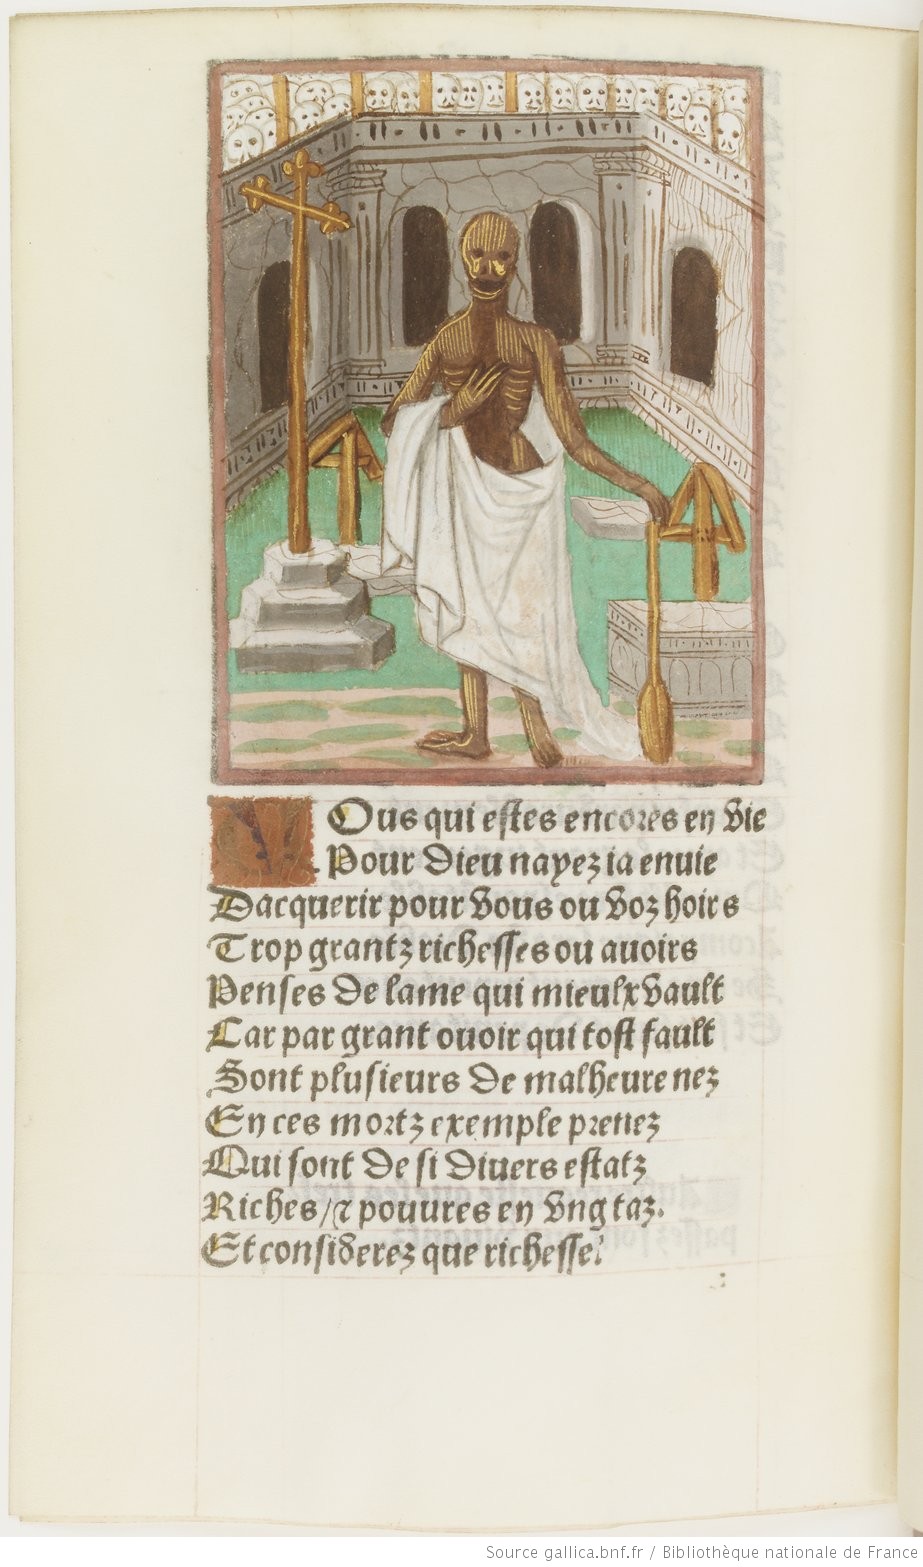 VOus qui estes encores en vie
Pour dieu nayez ia enuie
Dacquerir pour vous ou voz hoirs
Trop grantz richesses ou auoirs
Penses de lame qui mieulx vault
Car par grant ouoir qui tost fault
Sont plusieurs de malheure nez
En ces mortz exemple prenez
Qui sont de si diuers estatz
Riches/⁊ pouures en vng taz.
Et considerez que richesse
Source gallica.bnf.fr / Bibliothèque nationale de France